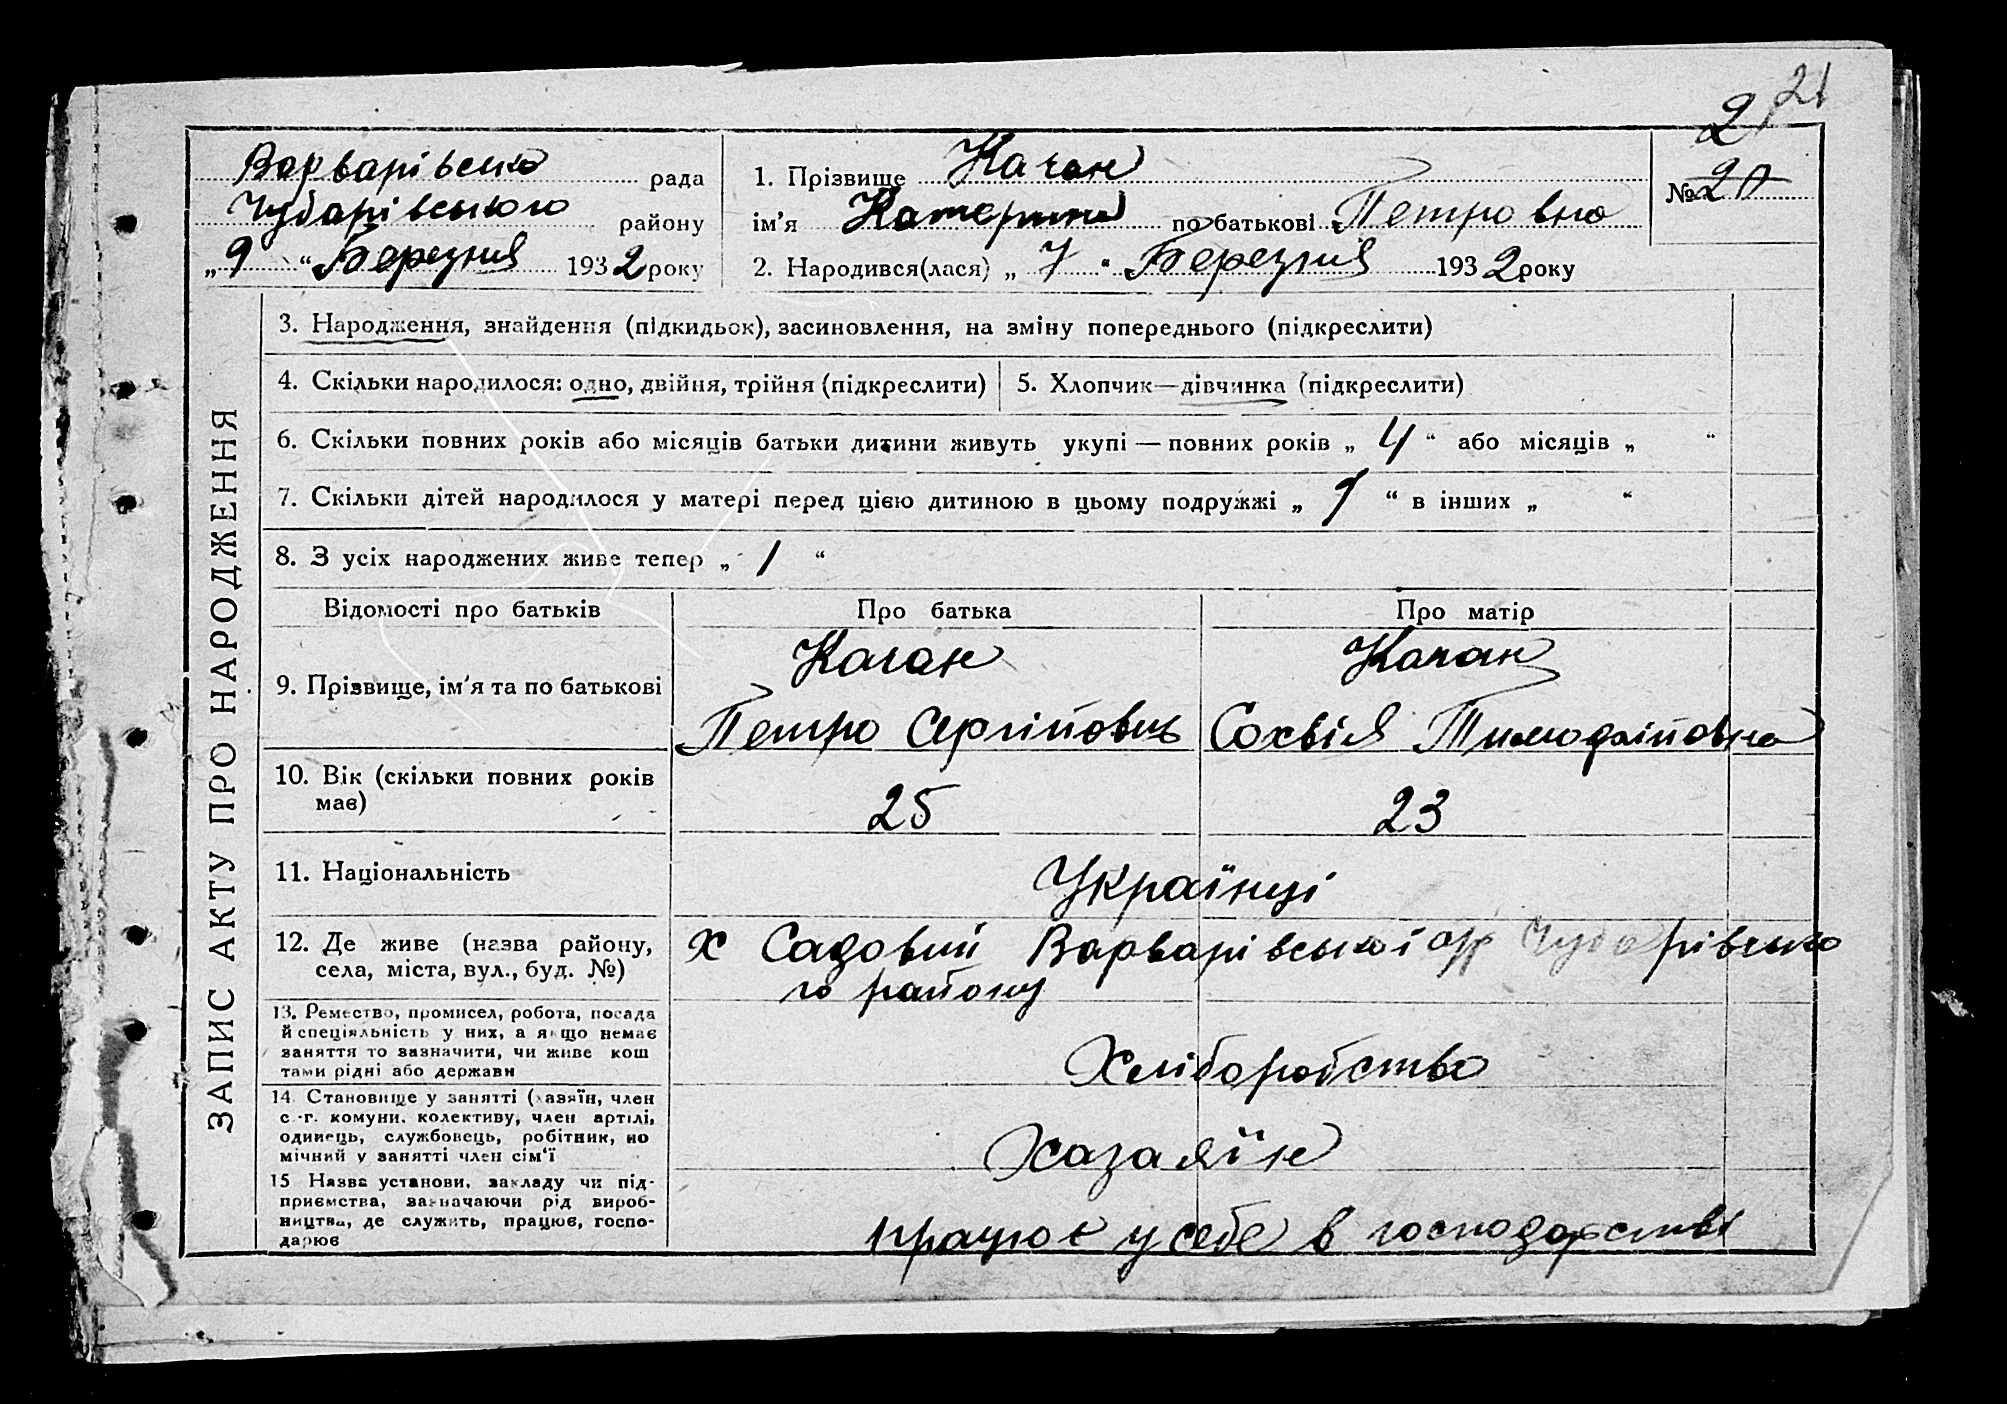 21
2
Варварівська рада
Чубарівського району
„ 9 “ Березня 1932 року
1. Прізвище Качан
ім’я Катерина по батькові Петровна
2. Народився(лася) „ 7 “ Березня 1932 року
№ 20
ЗАПИС АКТУ ПРО НАРОДЖЕННЯ
3. Народження, знайдення (підкидьок), засиновлення, на зміну попереднього (підкреслити)
4. Скільки народилося: одно, двійня, трійня (підкреслити)
5. Хлопчик—дівчинка (підкреслити)
6. Скільки повних років або місяців батьки дитини живуть укупі — повних років „ 4 “ або місяців „ “
7. Скільки дітей народилося у матері перед цією дитиною в цьому подружжі „ 1 “ в інших „ “
8. З усіх народжених живе тепер „ 1 “
Відомості про батьків
Про батька
Про матір
9. Прізвище, ім’я та по батькові
Качан
Петро Сергійовиь
Качан
Сохвія Тимофійовна
10. Вік (скільки повних років
має)
25
23
11. Національність
Українці
12. Де живе (назва району,
села, міста, вул., буд. №)
х Садовий Варварівської с/р Чубарівсько
го району
13. Ремество, промисел, робота, посада
й спеціяльність у них, а якщо немає
заняття то зазначити, чи живе кош
тами рідні або держави
Хліборобство
14. Становище у занятті (хазяїн, член
с.-г. комуни, колективу, член артілі,
одинець, службовець, робітник, по
мічний у занятті член сім’ї
Хазаяїн
15 Назва установи, закладу чи під-
приємства, зазначаючи рід вироб-
ництва, де служить, працює, госпо-
дарює
працює у себе в господарстві